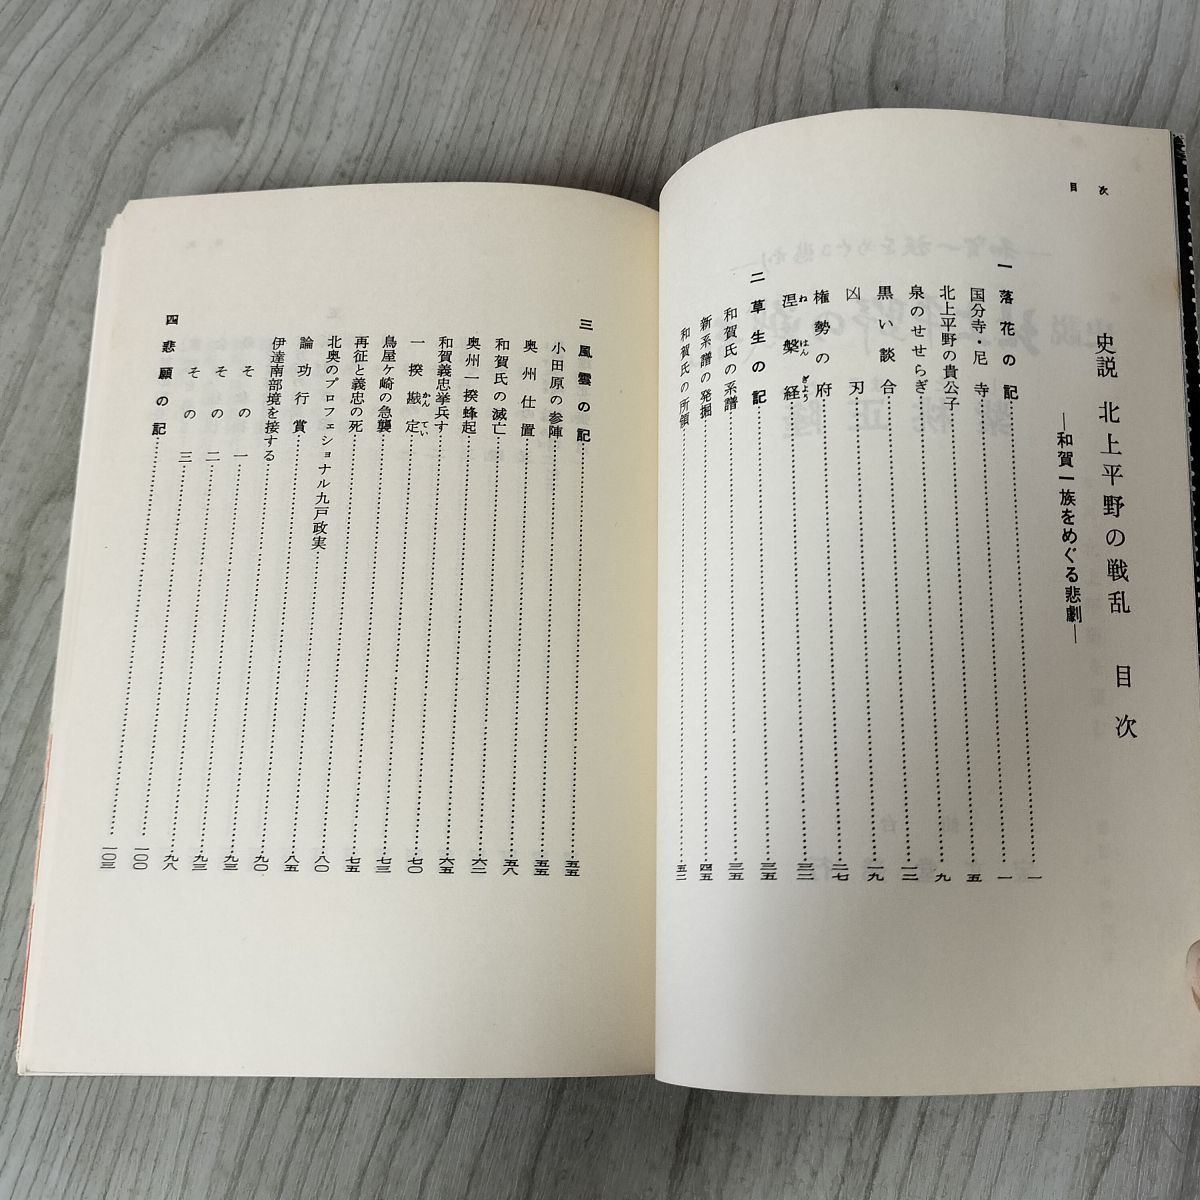 目次
史説 北上平野の戦乱 目次
―和賀一族をめぐる悲劇―
一 落花の記……一
国分寺・尼寺……一
北上平野の貴公子……五
泉のせせらぎ……九
黒い談合……一二
凶刃……一九
権勢の府……二七
涅槃経……三二
ねはんぎよう
二 草生の記……三五
和賀氏の系譜……三五
新系譜の発掘……四五
和賀氏の所領……五二
三 風雲の記……五五
小田原の参陣……五五
奥州仕置……五八
和賀氏の滅亡……六二
奥州一揆蜂起……六五
和賀義忠挙兵す……七〇
一揆勘定……七三
かんてい
鳥屋ヶ崎の急襲……七五
再征と義忠の死……八〇
北奥のプロフェショナル九戸政実……八五
論功行賞……九〇
伊達南部境を接する……九三
その一……九三
その二……九八
その三……一〇〇
四 悲願の記……一〇三